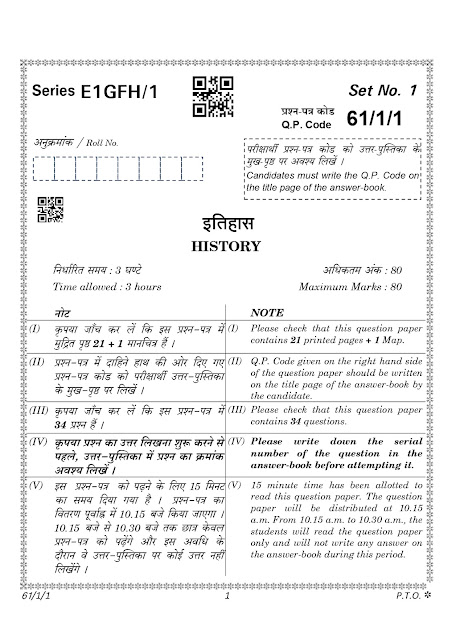 Series E1GFH/1
Set No. 1
प्रश्न-पत्र कोड
Q.P. Code 61/1/1
अनुक्रमांक / Roll No.
परीक्षार्थी प्रश्न-पत्र कोड को उत्तर-पुस्तिका के
मुख-पृष्ठ पर अवश्य लिखें ।
Candidates must write the Q.P. Code on
the title page of the answer-book.
इतिहास
HISTORY
निर्धारित समय : 3 घण्टे
अधिकतम अंक : 80
Time allowed : 3 hours
Maximum Marks : 80
नोट
(I) कृपया जाँच कर लें कि इस प्रश्न-पत्र में
मुद्रित पृष्ठ 21 + 1 मानचित्र हैं ।
(II) प्रश्न-पत्र में दाहिने हाथ की ओर दिए गए
प्रश्न-पत्र कोड को परीक्षार्थी उत्तर-पुस्तिका
के मुख-पृष्ठ पर लिखें ।
(III) कृपया जाँच कर लें कि इस प्रश्न-पत्र में
34 प्रश्न हैं ।
(IV) कृपया प्रश्न का उत्तर लिखना शुरू करने से
पहले, उत्तर-पुस्तिका में प्रश्न का क्रमांक
अवश्य लिखें ।
(V) इस प्रश्न-पत्र को पढ़ने के लिए 15 मिनट
का समय दिया गया है । प्रश्न-पत्र का
वितरण पूर्वाह्न में 10.15 बजे किया जाएगा ।
10.15 बजे से 10.30 बजे तक छात्र केवल
प्रश्न-पत्र को पढ़ेंगे और इस अवधि के
दौरान वे उत्तर-पुस्तिका पर कोई उत्तर नहीं
लिखेंगे ।
NOTE
(I) Please check that this question paper
contains 21 printed pages + 1 Map.
(II) Q.P. Code given on the right hand side
of the question paper should be written
on the title page of the answer-book by
the candidate.
(III) Please check that this question paper
contains 34 questions.
(IV) Please write down the serial
number of the question in the
answer-book before attempting it.
(V) 15 minute time has been allotted to
read this question paper. The question
paper will be distributed at 10.15
a.m. From 10.15 a.m. to 10.30 a.m., the
students will read the question paper
only and will not write any answer on
the answer-book during this period.
61/1/1
1
P.T.O.